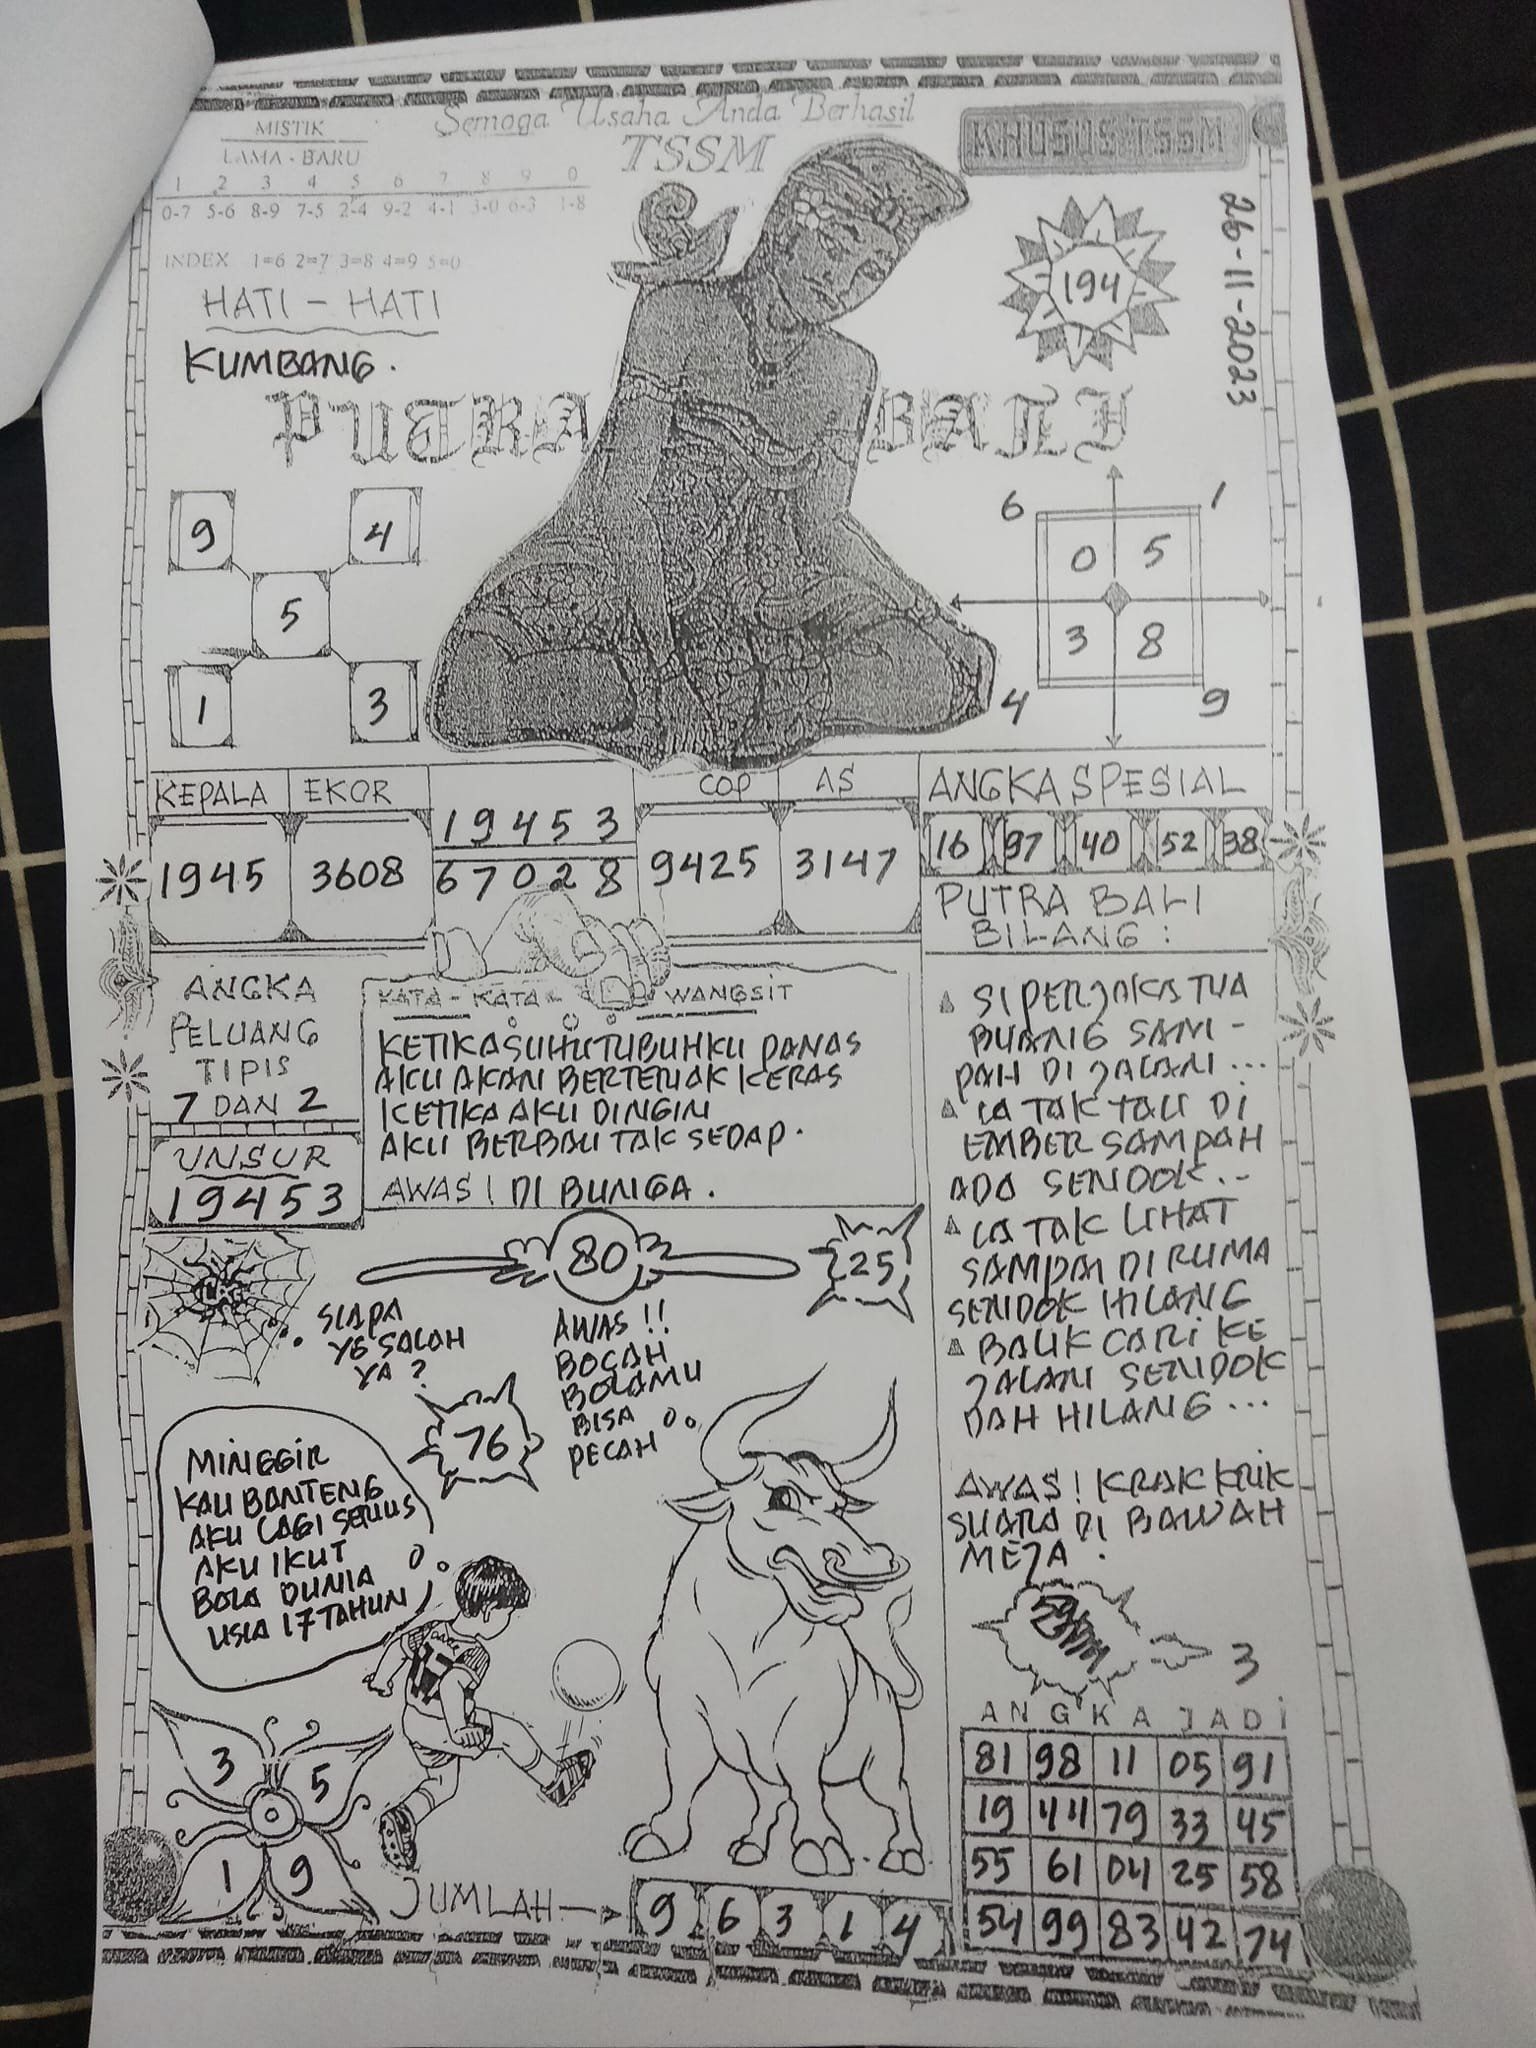 Semoga Usaha Anda Berhasil
TSSM
KHUSUS TSSM
MISTIK
LAMA - BARU
1 2 3 4 5 6 7 8 9 0
0-7 5-6 8-9 7-5 2-4 9-2 4-1 3-0 6-3 1-8
INDEX 1=6 2=7 3=8 4=9 5=0
HATI - HATI
KUMBANG.
194
26-11-2023
PUTRA BALI
9 4
5
1 3
6 1
0 5
3 8
4 9
KEPALA EKOR
1945 3608
19453
67028
COP AS
9425 3147
ANGKA SPESIAL
16 97 40 52 38
PUTRA BALI
BILANG :
ANGKA
PELUANG
TIPIS
7 DAN 2
UNSUR
19453
KATA - KATA - WANGSIT
KETIKA SUHU TUBUHKU PANAS
AKU AKAN BERTERIAK KERAS
KETIKA AKU DINGIN
AKU BERBAU TAK SEDAP.
AWAS! DI BUNGA.
SI PERJAKA TUA
BUANG SAM-
PAH DI JALAN...
IA TAK TAU DI
EMBER SAMPAH
ADA SENDOK...
IA TAK LIHAT
SAMPAI DI RUMA
SENDOK HILANG
BALIK CARI KE
JALAN SENDOK
DAH HILANG...
AWAS! KRAK KRIK
SUARA DI BAWAH
MEJA.
3
80
25
SIAPA
YG SALAH
YA?
76
AWAS!!
BOCAH
BOLAMU
BISA
PECAH
MINGGIR
KAU BANTENG
AKU LAGI SERIUS
AKU IKUT
BOLA DUNIA
USIA 17 TAHUN
3 5
0
1 9
JUMLAH
9 6 3 1 4
ANGKA JADI
81 98 11 05 91
19 44 79 33 45
55 61 04 25 58
54 99 83 42 74